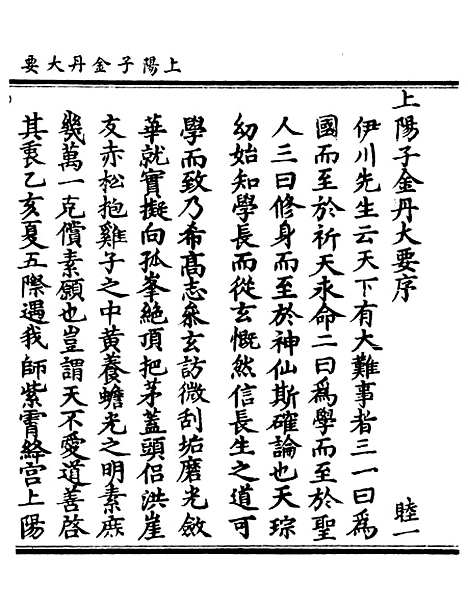 上陽子金丹大要
上陽子金丹大要序 睦一
伊川先生云天下有大難事者三一曰爲
國而至於祈天永命二曰爲學而至於聖
人三曰修身而至於神仙斯確論也天琮
幼始知學長而從玄慨然信長生之道可
學而致乃希髙志叅玄訪微刮垢磨光斂
華就實擬向孤峯絶頂把茅蓋頭侣洪崖
友赤松抱雞子之中黄養蟾光之明素庶
幾萬一克償素願也豈謂天不愛道善啓
其衷乙亥夏五際遇我師紫霄絳宫上陽